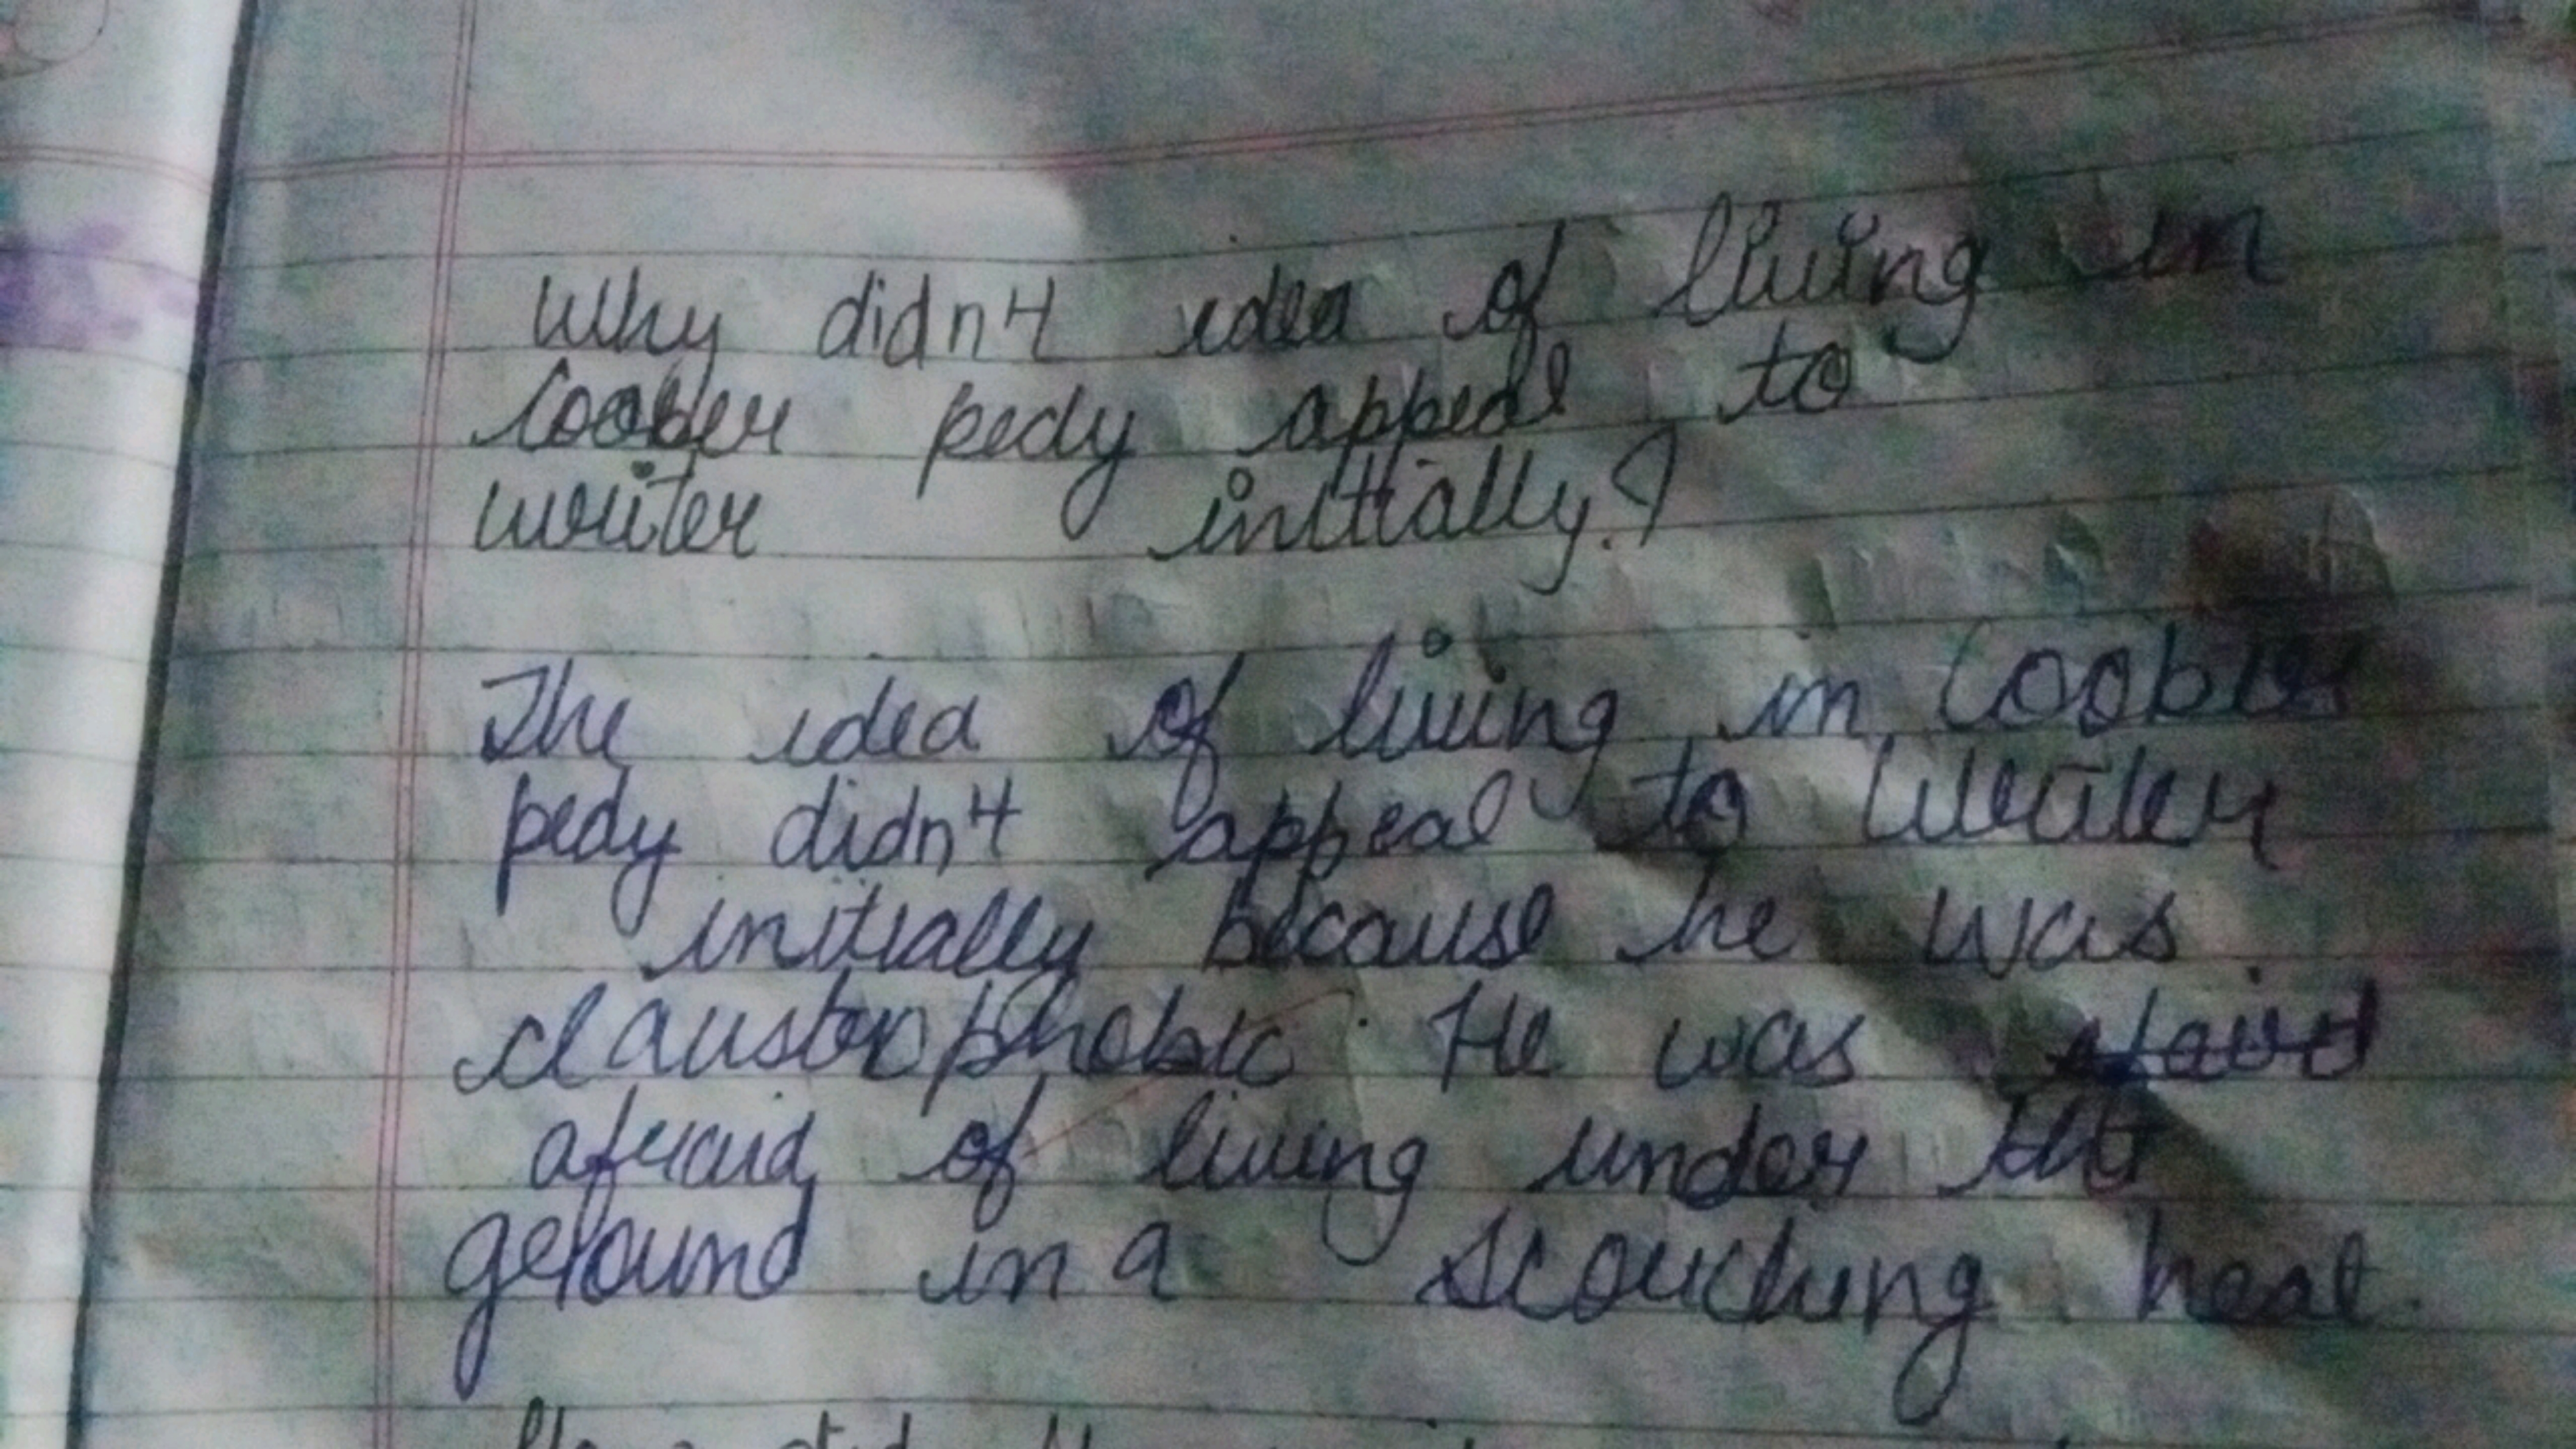 Why didn't idea of living in
Coober pedy appeal to
writer initially?
The idea of living in Coober
pedy didn't appeal to writer
initially because he was
claustrophobic. He was
afraid of living under the
ground in a scorching heat.